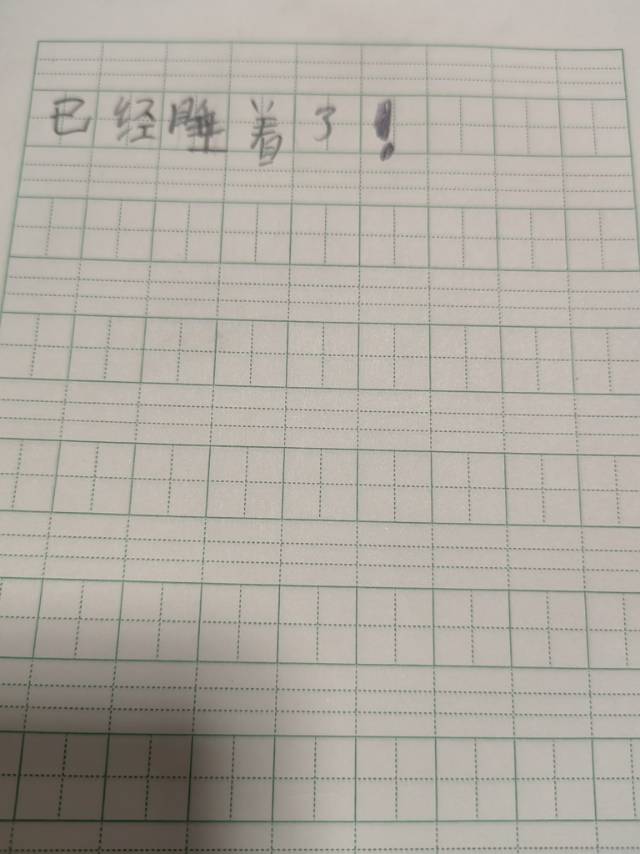 已经睡着了！